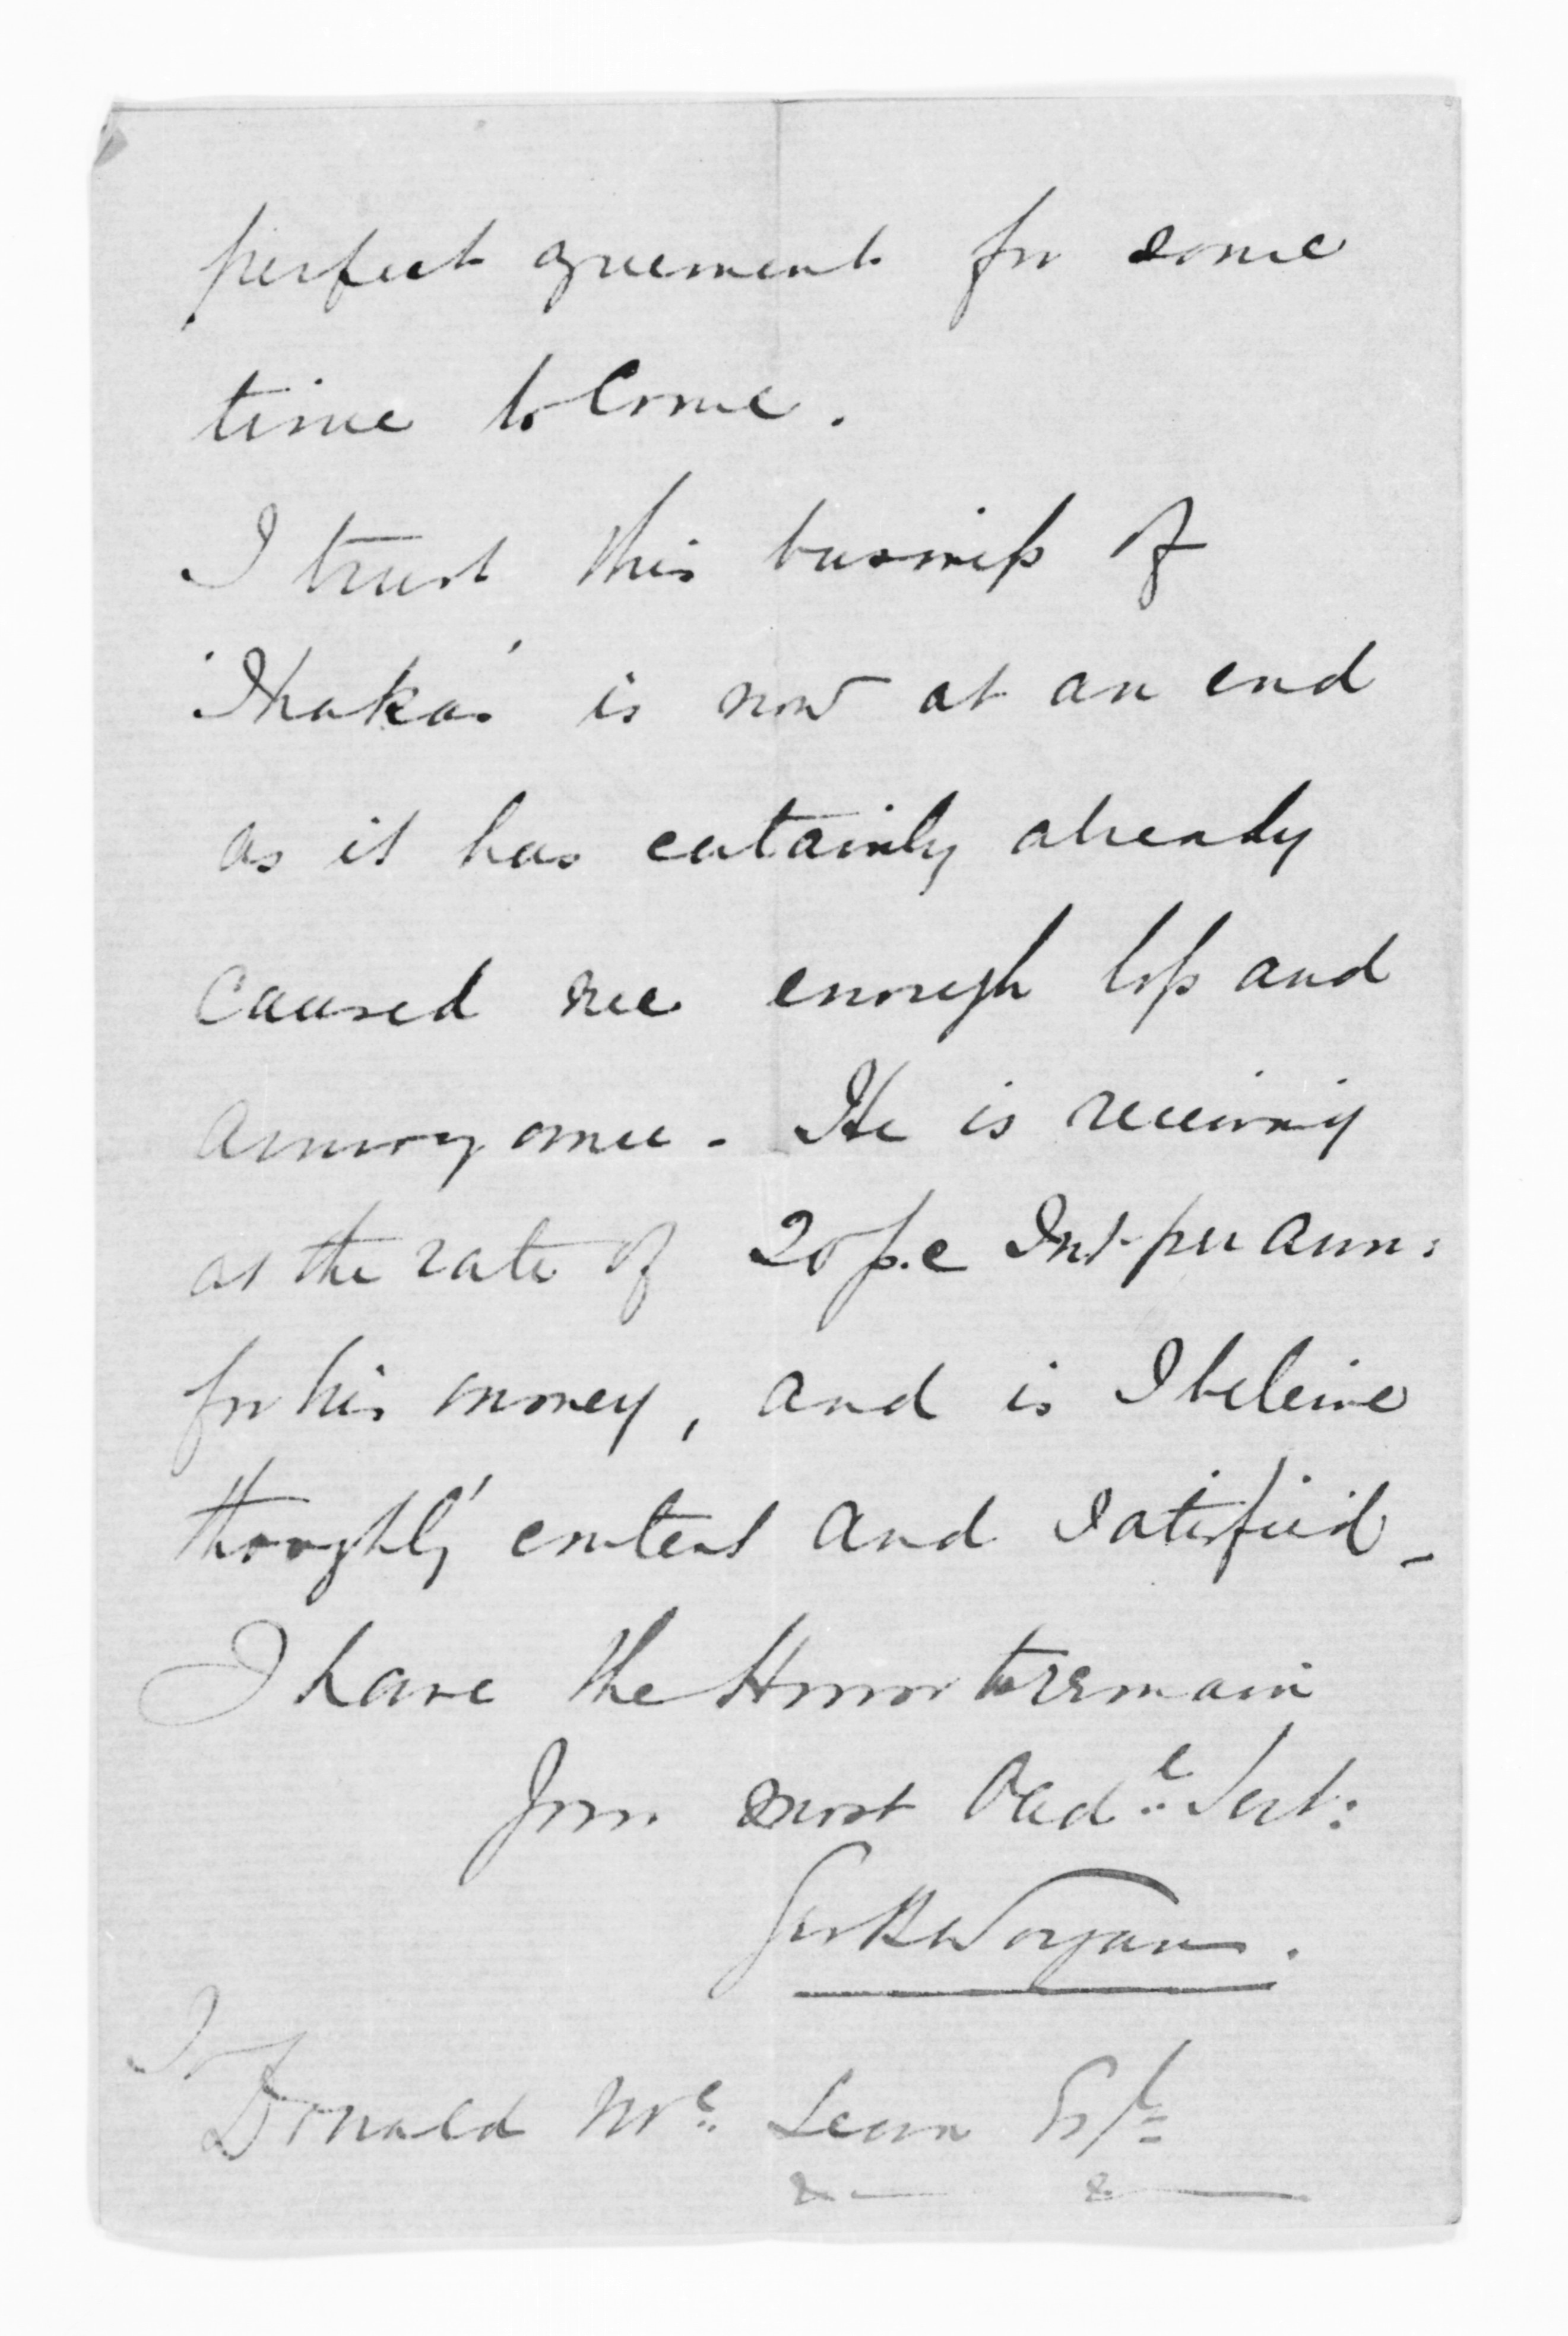 perfect agreement for some
time to Come.
I trust this business of
'Ihakas' is now at an end
as it has certainly already
Caused me enough loss and
annoyance. He is receiving
at the rate of 20 p.c Int per Ann:
for his money, and is I beleive
thoroghly content and satisfied_
I have the Honor to remain
Your most Obedt Servt:
Geo H Worgan.
To
Donald Mc Lean Esqr
&— &—